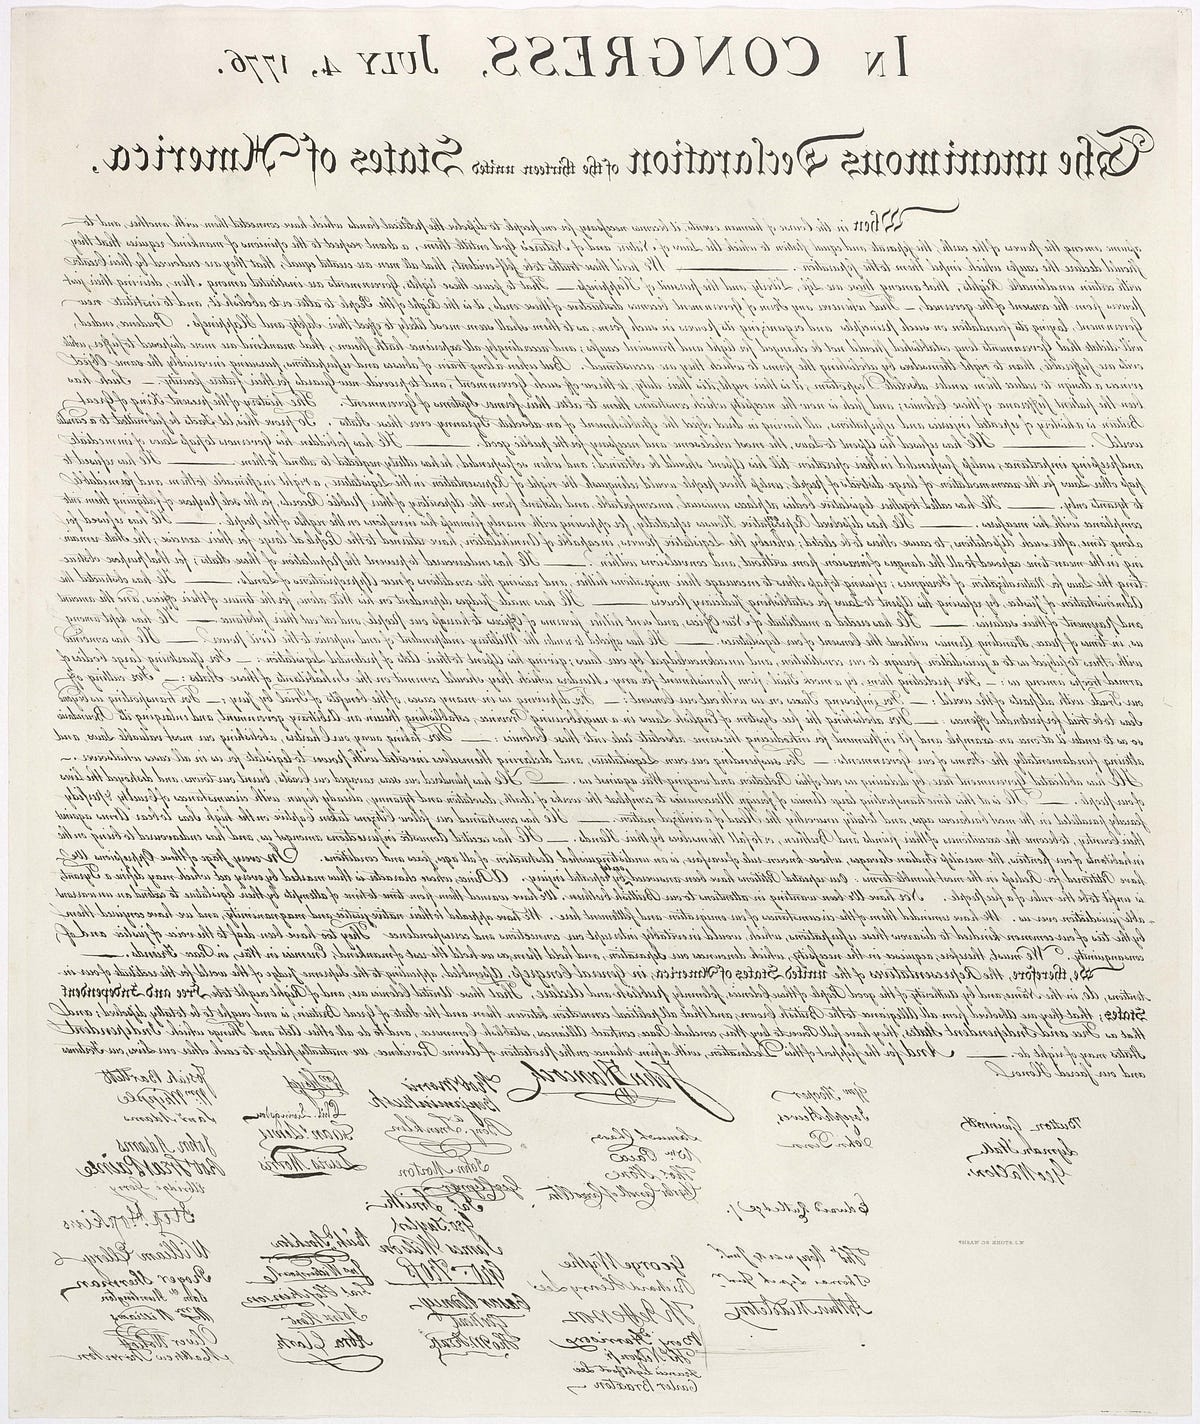 IN CONGRESS, JULY 4, 1776.
The unanimous Declaration of the thirteen united States of America,
When in the Course of human events, it becomes necessary for one people to dissolve the political bands which have connected them with another, and to
assume among the powers of the earth, the separate and equal station to which the Laws of Nature and of Nature's God entitle them, a decent respect to the opinions of mankind requires that they
should declare the causes which impel them to the separation. We hold these truths to be self-evident, that all men are created equal, that they are endowed by their Creator
with certain unalienable Rights, that among these are Life, Liberty and the pursuit of Happiness.— That to secure these rights, Governments are instituted among Men, deriving their just
powers from the consent of the governed,— That whenever any Form of Government becomes destructive of these ends, it is the Right of the People to alter or to abolish it, and to institute new
Government, laying its foundation on such principles and organizing its powers in such form, as to them shall seem most likely to effect their Safety and Happiness. Prudence, indeed,
will dictate that Governments long established should not be changed for light and transient causes; and accordingly all experience hath shewn, that mankind are more disposed to suffer, while
evils are sufferable, than to right themselves by abolishing the forms to which they are accustomed. But when a long train of abuses and usurpations, pursuing invariably the same Object
evinces a design to reduce them under absolute Despotism, it is their right, it is their duty, to throw off such Government, and to provide new Guards for their future security.— Such has
been the patient sufferance of these Colonies; and such is now the necessity which constrains them to alter their former Systems of Government. The history of the present King of Great
Britain is a history of repeated injuries and usurpations, all having in direct object the establishment of an absolute Tyranny over these States. To prove this, let Facts be submitted to a candid
world. He has refused his Assent to Laws, the most wholesome and necessary for the public good. He has forbidden his Governors to pass Laws of immediate
and pressing importance, unless suspended in their operation till his Assent should be obtained; and when so suspended, he has utterly neglected to attend to them. He has refused to
pass other Laws for the accommodation of large districts of people, unless those people would relinquish the right of Representation in the Legislature, a right inestimable to them and formidable
to tyrants only. He has called together legislative bodies at places unusual, uncomfortable, and distant from the depository of their Public Records, for the sole purpose of fatiguing them into
compliance with his measures. He has dissolved Representative Houses repeatedly, for opposing with manly firmness his invasions on the rights of the people. He has refused for
a long time, after such dissolutions, to cause others to be elected; whereby the Legislative powers, incapable of Annihilation, have returned to the People at large for their exercise; the State remain-
ing in the mean time exposed to all the dangers of invasion from without, and convulsions within. He has endeavoured to prevent the population of these States; for that purpose obstruc-
ting the Laws for Naturalization of Foreigners; refusing to pass others to encourage their migrations hither, and raising the conditions of new Appropriations of Lands. He has obstructed the
Administration of Justice, by refusing his Assent to Laws for establishing Judiciary powers. He has made Judges dependent on his Will alone, for the tenure of their offices, and the amount
and payment of their salaries. He has erected a multitude of New Offices, and sent hither swarms of Officers to harrass our people, and eat out their substance. He has kept among
us, in times of peace, Standing Armies without the Consent of our legislatures. He has affected to render the Military independent of and superior to the Civil power. He has combined
with others to subject us to a jurisdiction foreign to our constitution, and unacknowledged by our laws; giving his Assent to their Acts of pretended Legislation:— For Quartering large bodies of
armed troops among us:— For protecting them, by a mock Trial, from punishment for any Murders which they should commit on the Inhabitants of these States:— For cutting off
our Trade with all parts of the world:— For imposing Taxes on us without our Consent:— For depriving us in many cases, of the benefits of Trial by Jury;— For transporting us beyond
Seas to be tried for pretended offences— For abolishing the free System of English Laws in a neighbouring Province, establishing therein an Arbitrary government, and enlarging its Boundaries
so as to render it at once an example and fit instrument for introducing the same absolute rule into these Colonies:— For taking away our Charters, abolishing our most valuable Laws, and
altering fundamentally the Forms of our Governments:— For suspending our own Legislatures, and declaring themselves invested with power to legislate for us in all cases whatsoever.—
He has abdicated Government here, by declaring us out of his Protection and waging War against us.— He has plundered our seas, ravaged our Coasts, burnt our towns, and destroyed the lives
of our people.— He is at this time transporting large Armies of foreign Mercenaries to compleat the works of death, desolation and tyranny, already begun with circumstances of Cruelty & perfidy
scarcely paralleled in the most barbarous ages, and totally unworthy the Head of a civilized nation.— He has constrained our fellow Citizens taken Captive on the high Seas to bear Arms against
their Country, to become the executioners of their friends and Brethren, or to fall themselves by their Hands.— He has excited domestic insurrections amongst us, and has endeavoured to bring on the
inhabitants of our frontiers, the merciless Indian Savages, whose known rule of warfare, is an undistinguished destruction of all ages, sexes and conditions. In every stage of these Oppressions We
have Petitioned for Redress in the most humble terms: Our repeated Petitions have been answered only by repeated injury. A Prince, whose character is thus marked by every act which may define a Tyrant,
is unfit to be the ruler of a free people. Nor have We been wanting in attentions to our Brittish brethren. We have warned them from time to time of attempts by their legislature to extend an unwarrant-
able jurisdiction over us. We have reminded them of the circumstances of our emigration and settlement here. We have appealed to their native justice and magnanimity, and we have conjured them
by the ties of our common kindred to disavow these usurpations, which, would inevitably interrupt our connections and correspondence. They too have been deaf to the voice of justice and of
consanguinity. We must, therefore, acquiesce in the necessity, which denounces our Separation, and hold them, as we hold the rest of mankind, Enemies in War, in Peace Friends.
We, therefore, the Representatives of the united States of America, in General Congress, Assembled, appealing to the Supreme Judge of the world for the rectitude of our in-
tentions, do, in the Name, and by Authority of the good People of these Colonies, solemnly publish and declare, That these United Colonies are, and of Right ought to be Free and Independent
States; that they are Absolved from all Allegiance to the British Crown, and that all political connection between them and the State of Great Britain, is and ought to be totally dissolved; and
that as Free and Independent States, they have full Power to levy War, conclude Peace, contract Alliances, establish Commerce, and to do all other Acts and Things which Independent
States may of right do. And for the support of this Declaration, with a firm reliance on the protection of divine Providence, we mutually pledge to each other our Lives, our Fortunes
and our sacred Honor.
Button Gwinnett
Lyman Hall
Geo Walton.
W. J. STONE SC. WASHN.
Wm Hooper
Joseph Hewes,
John Penn
Edward Rutledge /.
Thos Heyward Junr.
Thomas Lynch Junr.
Arthur Middleton
John Hancock
Samuel Chase
Wm. Paca
Thos. Stone
Charles Carroll of Carrollton
George Wythe
Richard Henry Lee
Th Jefferson
Benja Harrison
Thos Nelson jr.
Francis Lightfoot Lee
Carter Braxton
Robt Morris
Benjamin Rush
Benja. Franklin
John Morton
Geo Clymer
Jas. Smith.
Geo. Taylor
James Wilson
Geo. Ross
Caesar Rodney
Geo Read
Tho M:Kean
Wm Floyd
Phil. Livingston
Frans. Lewis
Lewis Morris
Richd. Stockton
Jno Witherspoon
Fras. Hopkinson
John Hart
Abra Clark
Josiah Bartlett
Wm. Whipple
Saml Adams
John Adams
Robt Treat Paine
Elbridge Gerry
Step. Hopkins
William Ellery
Roger Sherman
Saml Huntington
Wm. Williams
Oliver Wolcott
Matthew Thornton